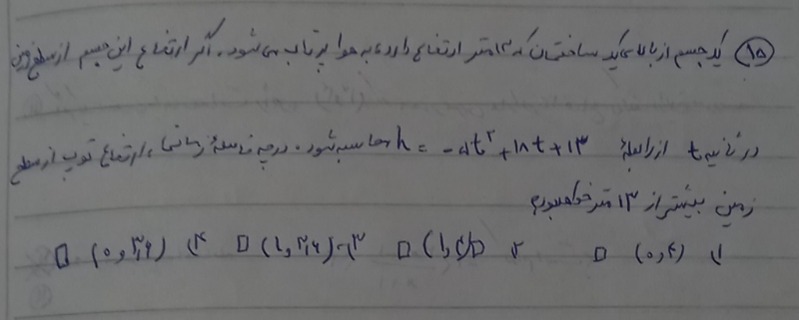 ۱۵ یک جسم از بالای یک ساختمان که ۱۳ متر ارتفاع دارد، به هوا پرتاب می شود. اگر ارتفاع این جسم از سطح زمین
در ثانیه t از رابطهٔ h = -۵t² + ۱۸t + ۱۳ محاسبه شود. در چه فاصلهٔ زمانی، ارتفاع توپ از سطح
زمین بیشتر از ۱۳ متر خواهد بود؟
۱) (۰,۴) □ ۲ □ ۳) (۱,۳٫۶) □ ۴) (۰,۳٫۶) □